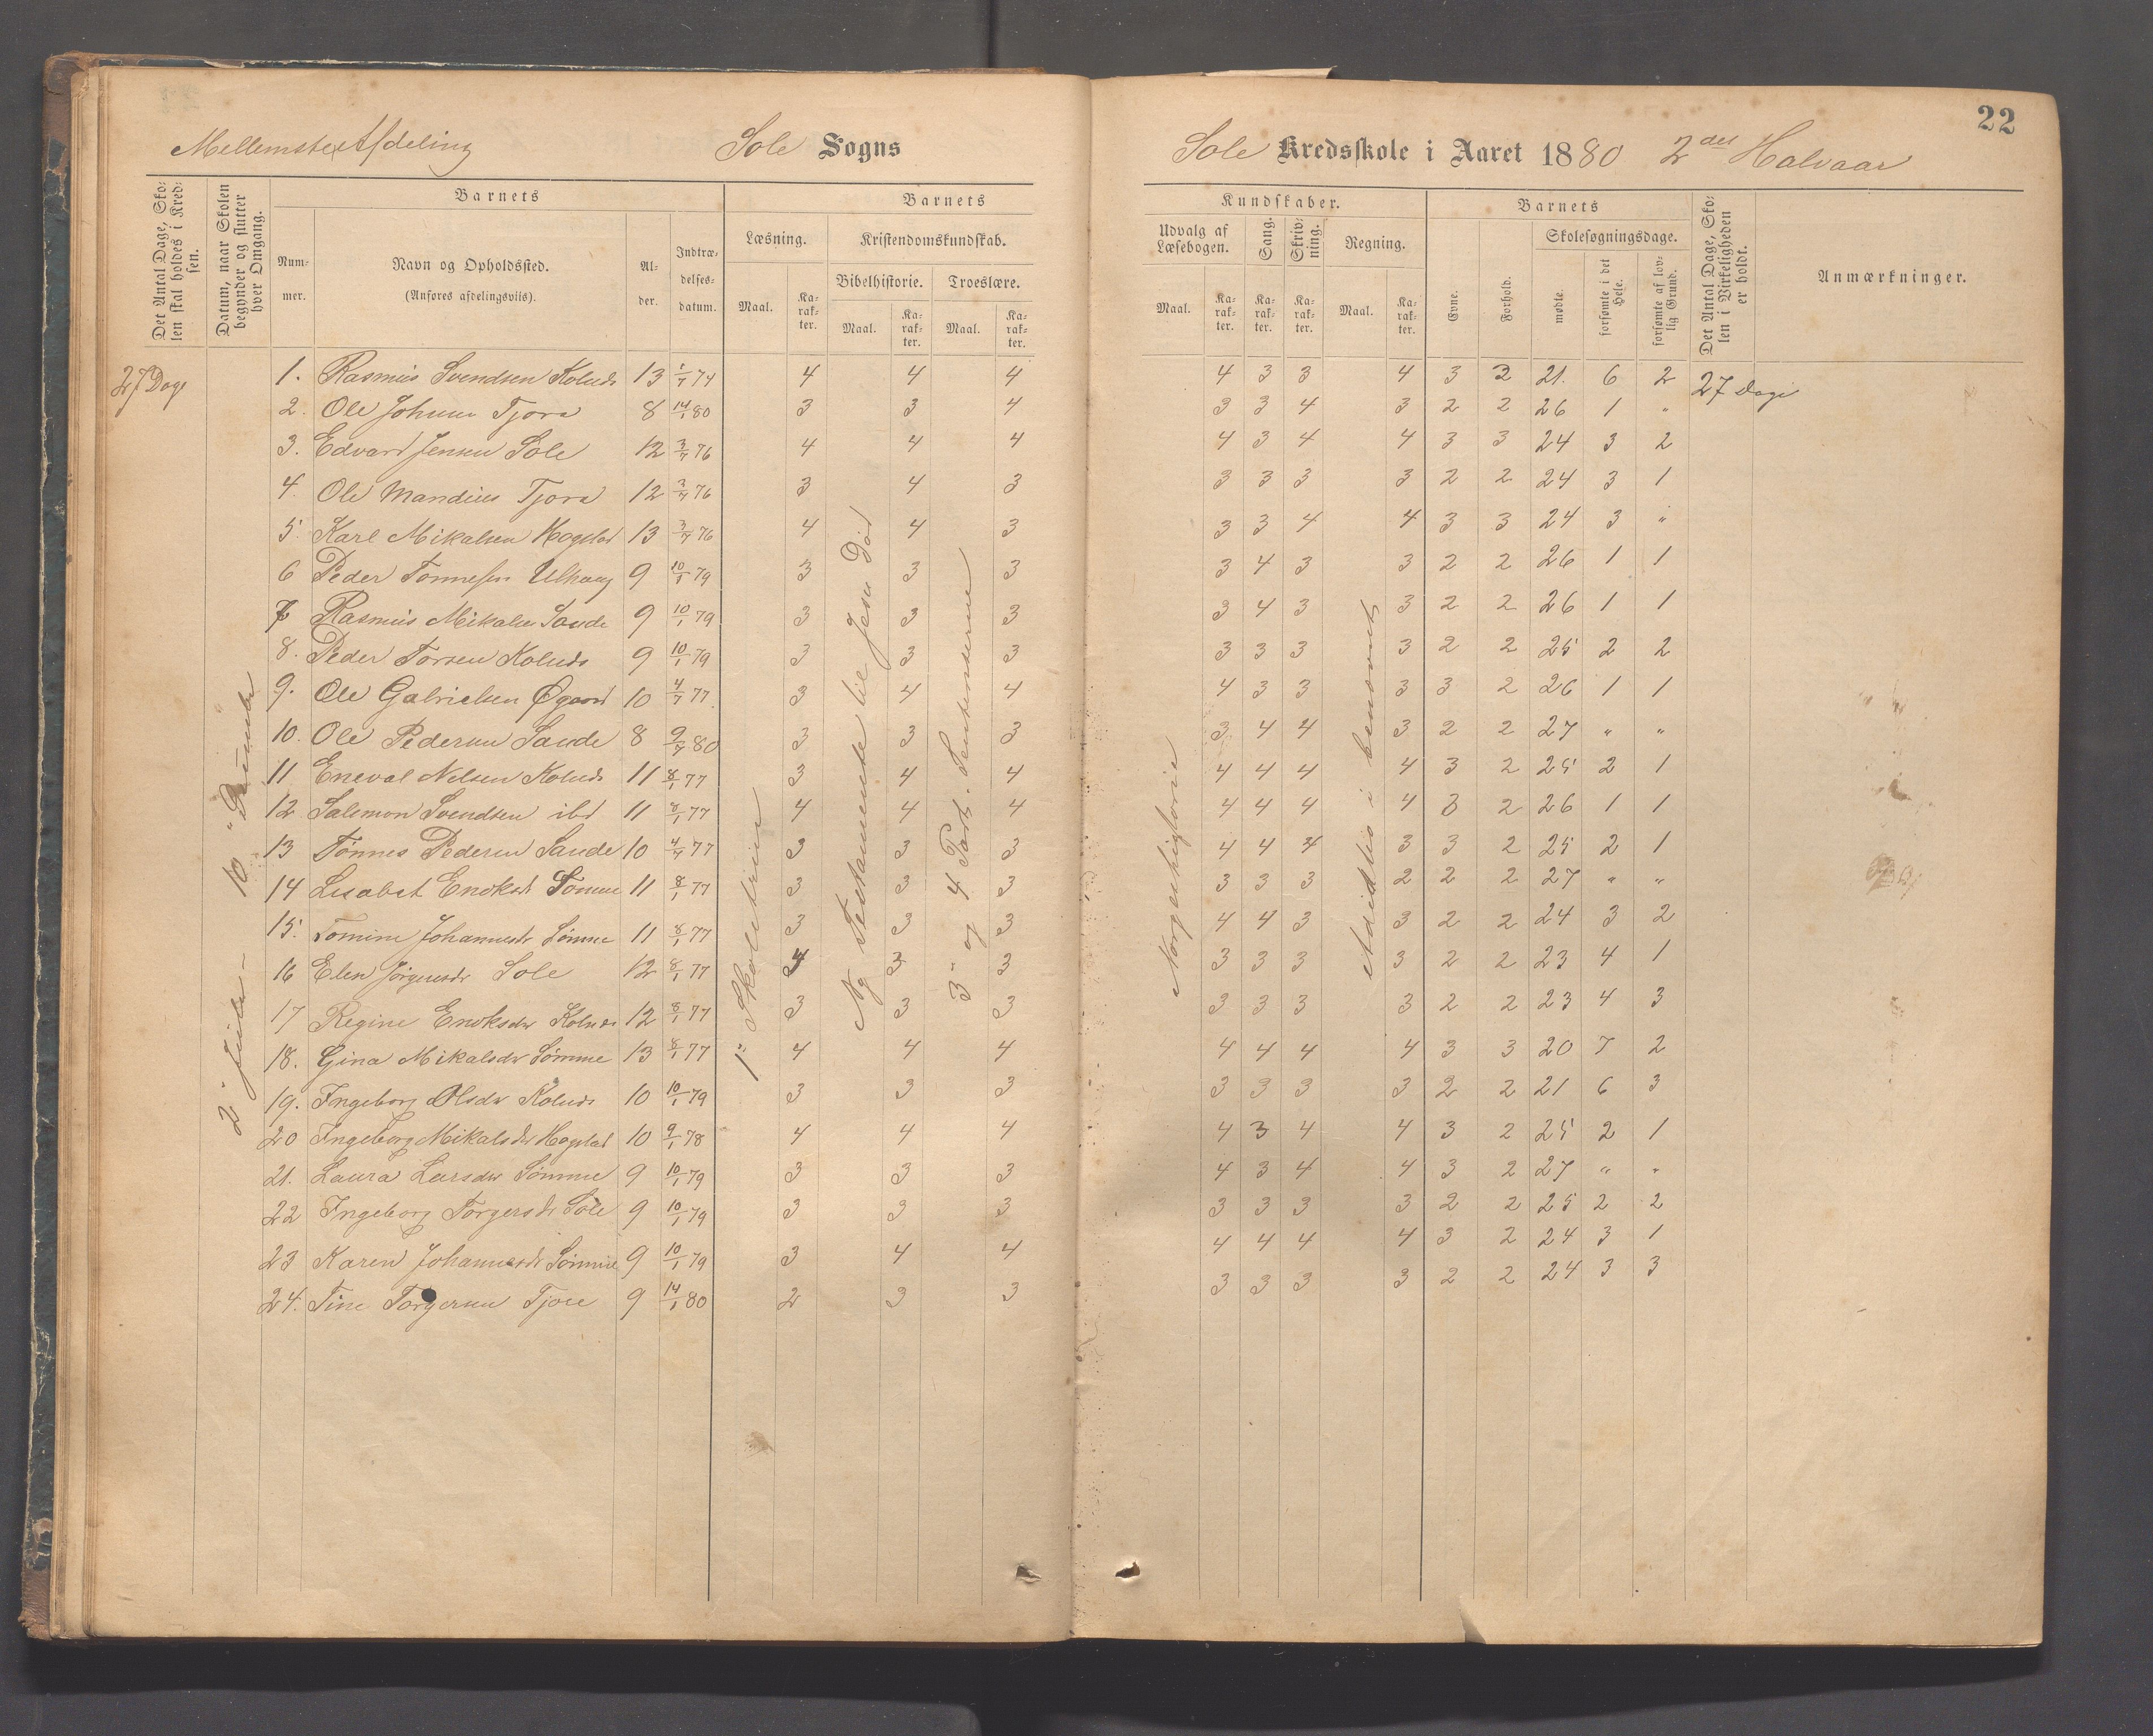 22
Mellemste Afdeling Sole Sogns
Sole Kredsskole i Aaret 1880 2det Halvaar
Det Antal Dage, Skolen skal holdes i Kredsen.
Datum, naar Skolen begynder og slutter hver Omgang.
Barnets
Nummer.
Navn og Opholdssted.
(Anføres afdelingsviis).
Alder.
Indtrædelsesdatum.
Barnets
Læsning.
Maal. Karakter.
Kristendomskundskab.
Bibelhistorie. Troeslære.
Maal. Karakter. Maal. Karakter.
Kundskaber.
Udvalg af Læsebogen. Sang. Skrivning. Regning.
Maal. Karakter. Karakter. Karakter. Maal. Karakter.
Barnets
Evne. Forhold.
Skolesøgningsdage.
mødte. forsømte i det Hele. forsømte af lovlig Grund.
Det Antal Dage, Skolen i Virkeligheden er holdt.
Anmærkninger.
27 Dage
1. Rasmus Svendsen Kolnds 13 1/7 74 4 4 4 4 3 3 4 3 3 21. 6 2 27 Dage
2. Ole Johnsen Tjora 8 14/1 80 3 3 4 3 3 4 3 2 2 26 1 "
3. Edvard Jensen Sole 12 3/7 76 4 4 4 4 3 4 4 3 3 24 3 2
4. Ole Mandius Tjora 12 3/7 76 3 4 3 3 3 3 3 2 2 24 3 1
5. Karl Mikalsen Hogstad 13 3/7 76 4 4 3 3 3 4 4 3 3 24 3 "
6 Peder Tønnesen Ulhaug 9 10/1 79 3 3 3 3 4 3 3 2 2 26 1 1
7 Rasmus Mikalsen Sande 9 10/1 79 3 3 3 3 4 3 3 2 2 26 1 1
8. Peder Torsen Kolnds 9 10/1 79 3 3 3 3 3 3 3 2 2 25 2 2
9. Ole Gabrielsen Øgaard 10 4/7 77. 3 4 4 4 3 3 3 3 2 26 1 1
10. Ole Pedersen Sande 8 9/7 80 3 3 3 3 4 4 3 2 2 27 " "
11 Eneval Nelsen Kolnds 11 8/1 77 3 4 4 4 4 4 4 3 2 25 2 1
12 Salemon Svendsen ibd 11 8/1 77 4 4 4 4 4 4 4 3 2 26 1 1
13 Tønnes Pedersen Sande 10 4/7 77 3 3 3 4 4 4 3 3 2 25 2 1
14 Lisabet Enoksdr Sømme 11 8/1 77 3 3 3 3 3 3 2 2 2 27 " "
15. Tomine Johannesdr Sømme 11 8/1 77 3 3 3 4 4 3 3 2 2 24 3 2
16 Elen Jørgensdr Sole 12 8/1 77 4 3 3 3 3 3 3 2 2 23 4 1
17 Regine Enoksdr Kolnds 12 8/1 77 3 3 3 3 3 3 3 2 2 23 4 3
18. Gina Mikalsdr Sømme 13 8/1 77 4 4 4 4 4 4 4 3 3 20 7 2
19. Ingeborg Olsdr Kolnds 10 10/1 79 3 3 3 3 3 3 3 2 2 21 6 3
20 Ingeborg Mikalsdr Hogstad 10 9/1 78 4 4 4 4 3 4 4 3 2 25 2 1
21. Laura Larsdr Sømme 9 10/1 79 3 3 3 4 3 4 4 3 2 27 " "
22 Ingeborg Torgersdr Sole 9 10/1 79 3 3 3 3 3 3 3 2 2 25 2 2
23 Karen Johannesdr Sømme 9 10/1 79 3 4 4 4 4 4 4 3 2 24 3 1
24. Tine Torgersen Tjore 9 14/1 80 2 3 3 3 3 3 3 2 2 24 3 3
1ste Skoletrin
Ny Testamente til Jesu Død
3- og 4 Part.
Norgeshistorie
Addition i benævnte